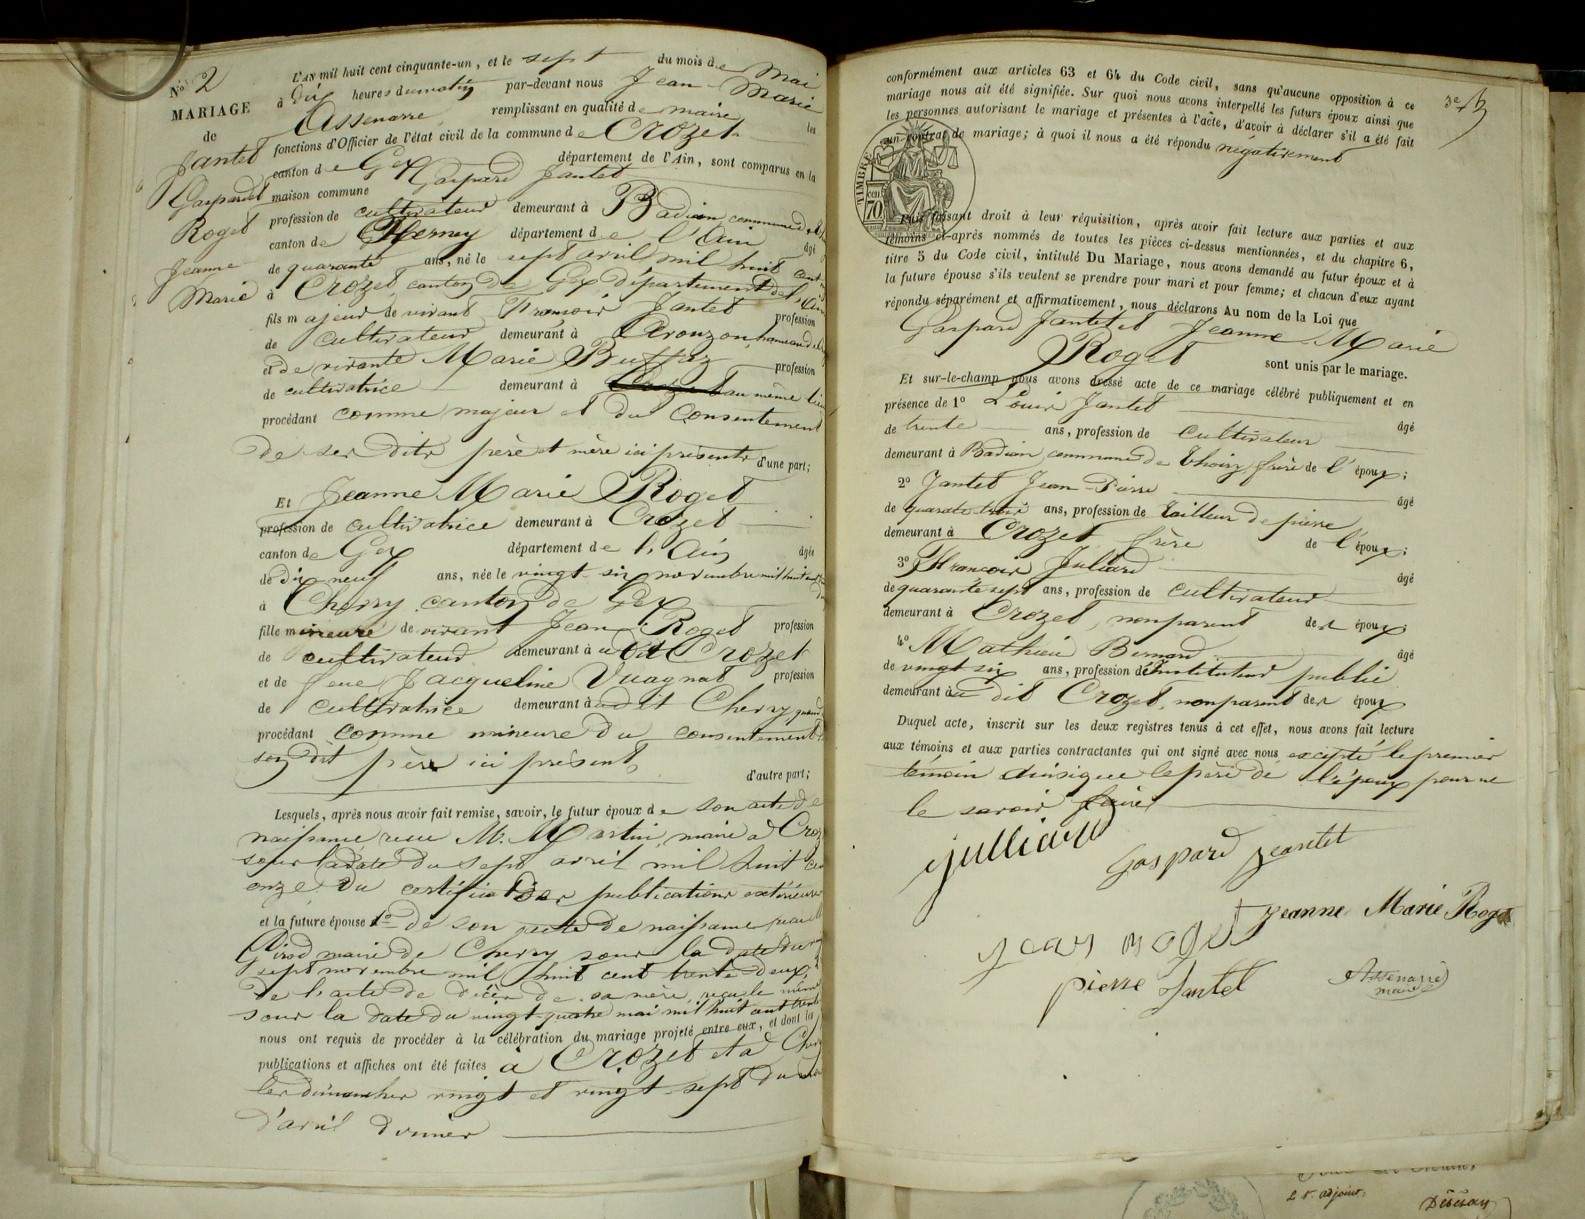 No 2
MARIAGE
de
Jantet
Gaspard et
Roget
Jeanne
Marie
L'AN mil huit cent cinquante-un, et le sept du mois de Mai
à dix heures du matin par-devant nous Jean-Marie
Assenarre remplissant en qualité de maire les
fonctions d'Officier de l'état civil de la commune de Crozet
canton de Gex département de l'Ain, sont comparus en la
maison commune Gaspard Jantet
profession de cultivateur demeurant à Badian, commune de
canton de Ferney département de l'Ain âgé
de quarante ans, né le sept avril mil huit cent
à Crozet, canton de Gex, département de l'Ain
fils majeur de vivant François Jantet profession
de cultivateur demeurant à Avouzon, hameau de
et de vivante Marie Buffaz profession
de cultivatrice demeurant à au même lieu
procédant comme majeur et du consentement
de ses dits père et mère ici présents d'une part;
Et Jeanne Marie Roget
profession de cultivatrice demeurant à Crozet
canton de Gex département de l'Ain âgée
de dix neuf ans, née le vingt-six novembre mil huit cent
à Chevry canton de Gex
fille mineure de vivant Jean Roget profession
de cultivateur demeurant à udit Crozet
et de feue Jacqueline Vuagnat profession
de cultivatrice demeurant à udit Chevry quand
procédant comme mineure du consentement de
son dit père ici présent
d'autre part;
Lesquels, après nous avoir fait remise, savoir, le futur époux de son acte de
naissance reçu M. Martin, maire à Croz
sous la date du sept avril mil huit cent
onze. Du certificat des publications extérieures
et la future épouse 1o de son acte de naissance reçu
Girod maire de Chevry sous la date du
sept novembre mil huit cent trente-deux,
de l'acte de décès de sa mère, reçu le même
sous la date du vingt-quatre mai mil huit cent trente
nous ont requis de procéder à la célébration du mariage projeté entre eux, et dont les
publications et affiches ont été faites à Crozet et à Chev
les dimanches vingt et vingt-sept du
d'avril dernier
conformément aux articles 63 et 64 du Code civil, sans qu'aucune opposition à ce
mariage nous ait été signifiée. Sur quoi nous avons interpellé les futurs époux ainsi que
les personnes autorisant le mariage et présentes à l'acte, d'avoir à déclarer s'il a été fait
un contrat de mariage; à quoi il nous a été répondu négativement
TIMBRE
70
Puis faisant droit à leur réquisition, après avoir fait lecture aux parties et aux
témoins ci-après nommés de toutes les pièces ci-dessus mentionnées, et du chapitre 6,
titre 5 du Code civil, intitulé Du Mariage, nous avons demandé au futur époux et à
la future épouse s'ils veulent se prendre pour mari et pour femme; et chacun d'eux ayant
répondu séparément et affirmativement, nous déclarons Au nom de la Loi que
Gaspard Jantet et Jeanne Marie
Roget sont unis par le mariage.
Et sur-le-champ nous avons dressé acte de ce mariage célébré publiquement et en
présence de 1o Louis Jantet âgé
de trente ans, profession de cultivateur
demeurant à Badian commune de Thoiry frère de l'époux;
2o Jantet Jean-Pierre âgé
de quarante trois ans, profession de tailleur de pierre
demeurant à Crozet frère de l'époux;
3o François Juliard âgé
de quarante sept ans, profession de cultivateur
demeurant à Crozet, non parent des époux;
4o Mathieu Bernard âgé
de vingt six ans, profession d'instituteur public
demeurant à u dit Crozet, non parent des époux
Duquel acte, inscrit sur les deux registres tenus à cet effet, nous avons fait lecture
aux témoins et aux parties contractantes qui ont signé avec nous excepté le premier
témoin ainsi que le père de l'époux pour ne
le savoir faire
julliard
Gaspard Jeantet
Jeanne Marie Roget
jean roget
pierre Jantet
Assenarre
maire